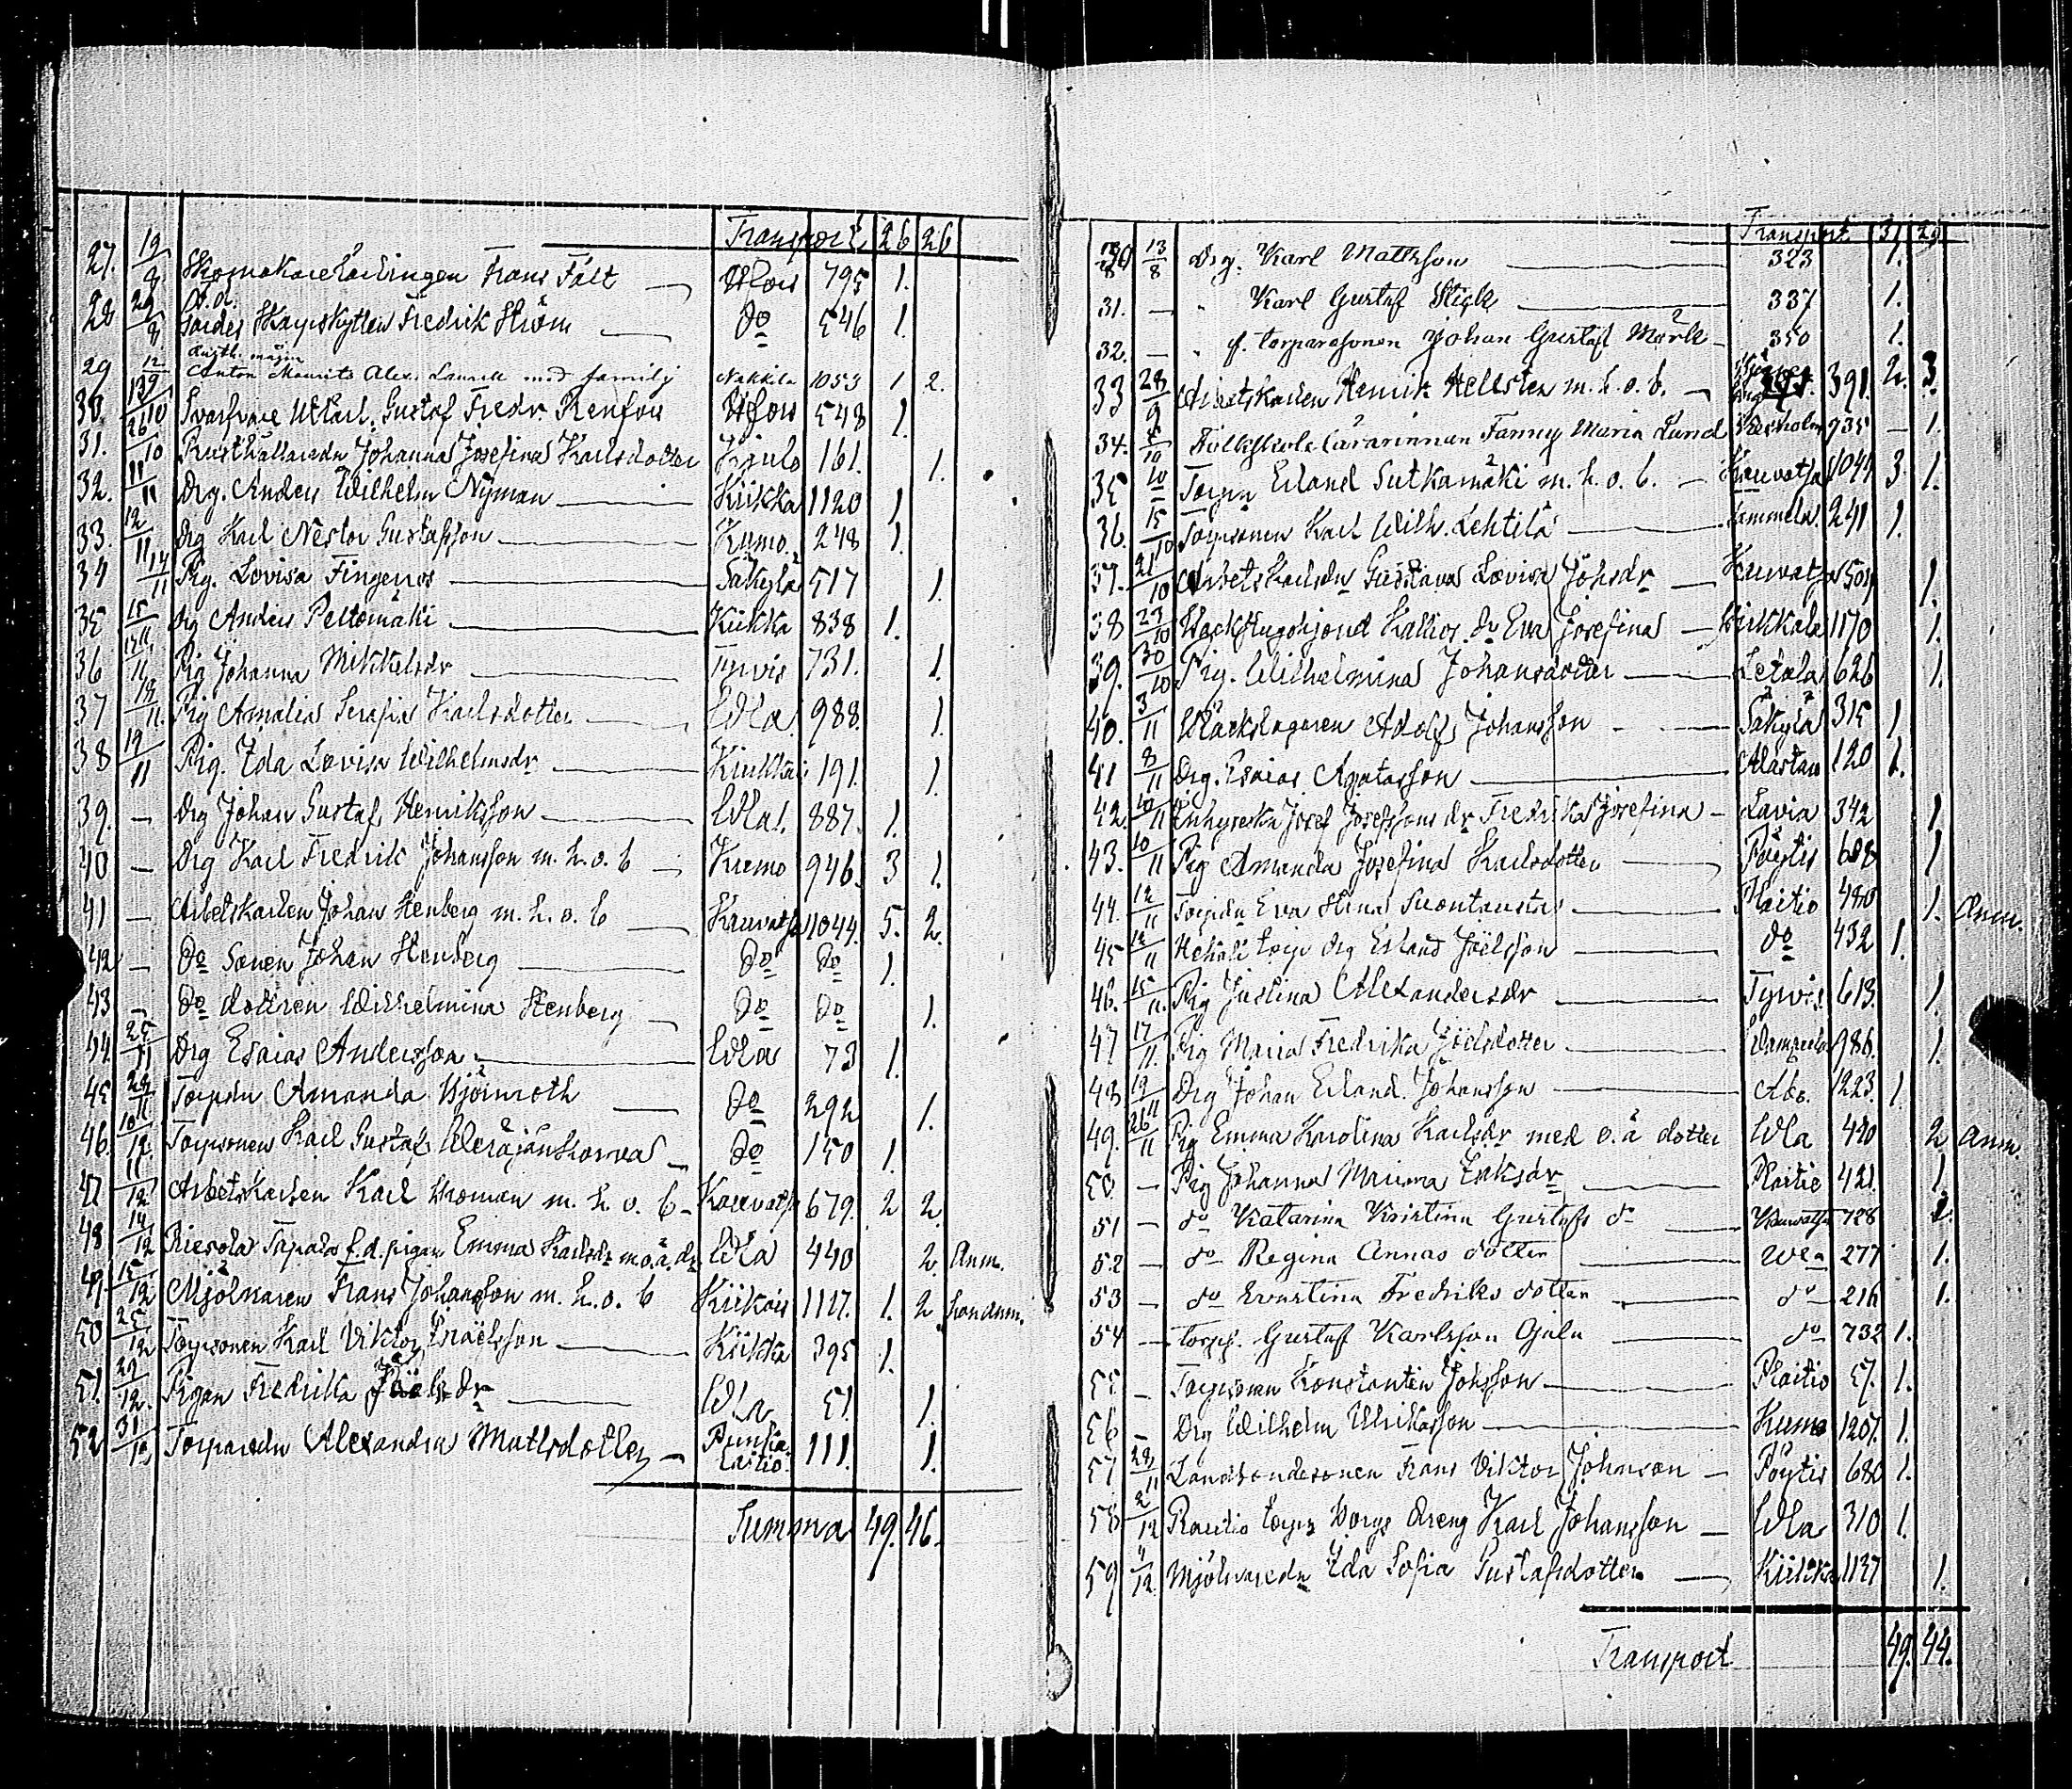 Transport 26 26
27. 19/8 Skomakarelärlingen Frans Fält 795 1.
28 29/8 Skarpskytten Fredrik Ström do 546 1.
29 12/ Anton Mauritz Alex. Laurell med familj Nakkila 1053 1 2.
30. /10 Gustaf Fredr. Renfors 548 1.
31. 26/10 Rusthållaredn Johanna Josefina Karlsdotter Kjulo 161. 1.
32. 11/11 Drg. Anders Wilhelm Nyman Kiikka 1120 1
33. 12/11 Drg Karl Nestor Gustafsson Kumo 248 1.
34 14/11 Pig. Lovisa Fingerros Säkylä 517 1.
35 15/11 Drg Anders Peltomäki Kiikka 838 1.
36 /11 Pig Johanna Mikkelsdr Tyrvis 731. 1.
37 18/11. Pig Amalia Serafia Karlsdotter Vla 988. 1.
38 19/11 Pig. Ida Lovisa Wilhelmsdr 191. 1.
39. — Drg Johan Gustaf Henriksson Vla. 887. 1.
40 — Drg Karl Fredrik Johansson m. h. o. b Kumo 946. 3 1.
41 — Arbetskarlen Johan Stenberg m. h. o. b Kauvatsa 1044. 5. 2.
42 — do Sonen Johan Stenberg do do 1.
43 — do dottren Wilhelmina Stenberg do do 1.
44. 25/11 Drg Esaias Andersson Vla 73 1.
45 29/11 Torpdn Amanda Björnroth do 292 1.
46. 10/12. Torpsonen Karl Gustaf do 150 1.
47 11/12 Arbetskarlen Karl m. h. o. b Kauvatsa 679. 2 2.
48 14/12 f. d. pigan Emma Karlsdr m. o. ä. dr Vla 440 2. Anm.
49. 15/12 Mjölnaren Frans Johansson m. h. o. b 1127. 1. 2
50 25/12 Torpsonen Karl Viktor Israelsson Kiikka 395 1.
51. 29/12. Pigan Fredrika Vla 51. 1.
52 31/12 Torparedn Alexandra Mattsdotter Punkalaitio. 111. 1.
Summa 49. 46.
Transport 31 29
30 13/8 Drg. Karl Mattsson 323 1.
31. — " Karl Gustaf 337 1.
32. — " f. torparesonen Johan Gustaf Mörk 350 1.
33 28/9 Arbetskarlen Henrik Hellsten m. h. o. b. 391. 2. 3.
34. /10 Folkskolelärarinnan Fanny Maria Lund 935 — 1.
35 10/ Torpn Erland Sutkamäki m. h. o. b. Kauvatsa 1044 3. 1.
36. 15/10 Torpsonen Karl Wilh. Lehtilä 241 1.
37. 21/10 Arbetskarlsdn Gustava Lovisa Johsdr Kauvatsa 504 1.
38 23/10 Kallios dr Eva Josefina Birkkala 1170 1.
39. 30/10 Pig. Wilhelmina Johansdotter Letala 626 1.
40. 3/11 Adolf Johansson Säkylä 315 1
41 8/11 Drg. Esaias Agatasson Alastaro 120 1.
42. 10/11 Inhyseska Josef Josefssons dr Fredrika Josefina Lavia 342 1
43. 10/11 Pig Amanda Josefina Karlsdotter Pöytis 688 1
44. 12/11 Torpdn Eva Stina Suontausta Plaitio 480 1. Anm.
45 12/11 torp drg Erland Joelsson do 432 1.
46. 15/11. Pig Justina Alexandersdr Tyrvis. 613. 1.
47 17/11. Pig Maria Fredrika Joelsdotter 986. 1.
48 19/ Drg Johan Erland Johansson Åbo. 1223. 1.
49. 26/11 Pig Emma Karolina Karlsdr med o. ä dotter Vla 420 2 Anm.
50. — Pig Johanna Eriksdr Plaitio 421. 1.
51 — do Katarina Kristina Gustafs dr Kauvatsa 728 1.
52 — do Regina Annas dotter Vla 277 1.
53 — do Ernstina Fredriks dotter do 216 1.
54 — Torps. Gustaf Karlsson Ojala do 732 1.
55 — Torpsonen Konstantin Johsson Plaitio 57. 1.
56 — Drg Wilhelm Ulriksson Kumo 1207. 1.
57 28/11 Landbondesonen Frans Viktor Johanson Pöytis 680 1.
58 2/12 torp Dreng Karl Johansson Vla 310 1.
59 /12. Mjölnaredn Ida Sofia Gustafsdotter Kiikka 1127 1.
Transport 49. 44.